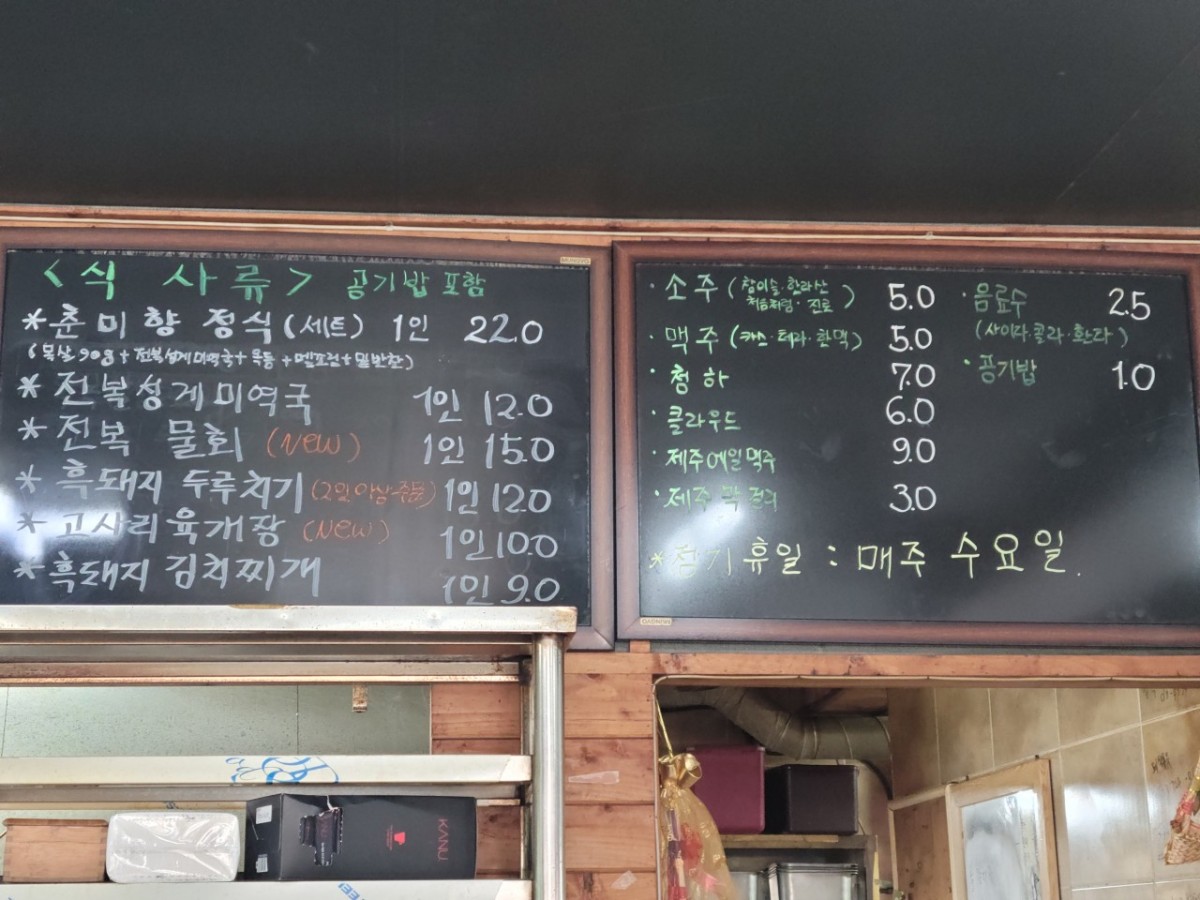 <식 사 류> 공기밥 포함
*춘미향 정식(세트) 1인 22.0
(목살 90g + 전복성게미역국 + 묵등 + 멜조림 + 밑반찬)
*전복성게미역국 1인 12.0
*전복 물회 (New) 1인 15.0
*흑돼지 두루치기 (2인이상 주문) 1인 12.0
*고사리육개장 (New) 1인 10.0
*흑돼지 김치찌개 1인 9.0
·소주 (참이슬·한라산 처음처럼·진로) 5.0
·맥주 (카스·테라·한맥) 5.0
·청하 7.0
·클라우드 6.0
·제주에일맥주 9.0
·제주막걸리 3.0
·음료수 2.5
(사이다·콜라·환타)
·공기밥 1.0
*정기휴일 : 매주 수요일.
KANU